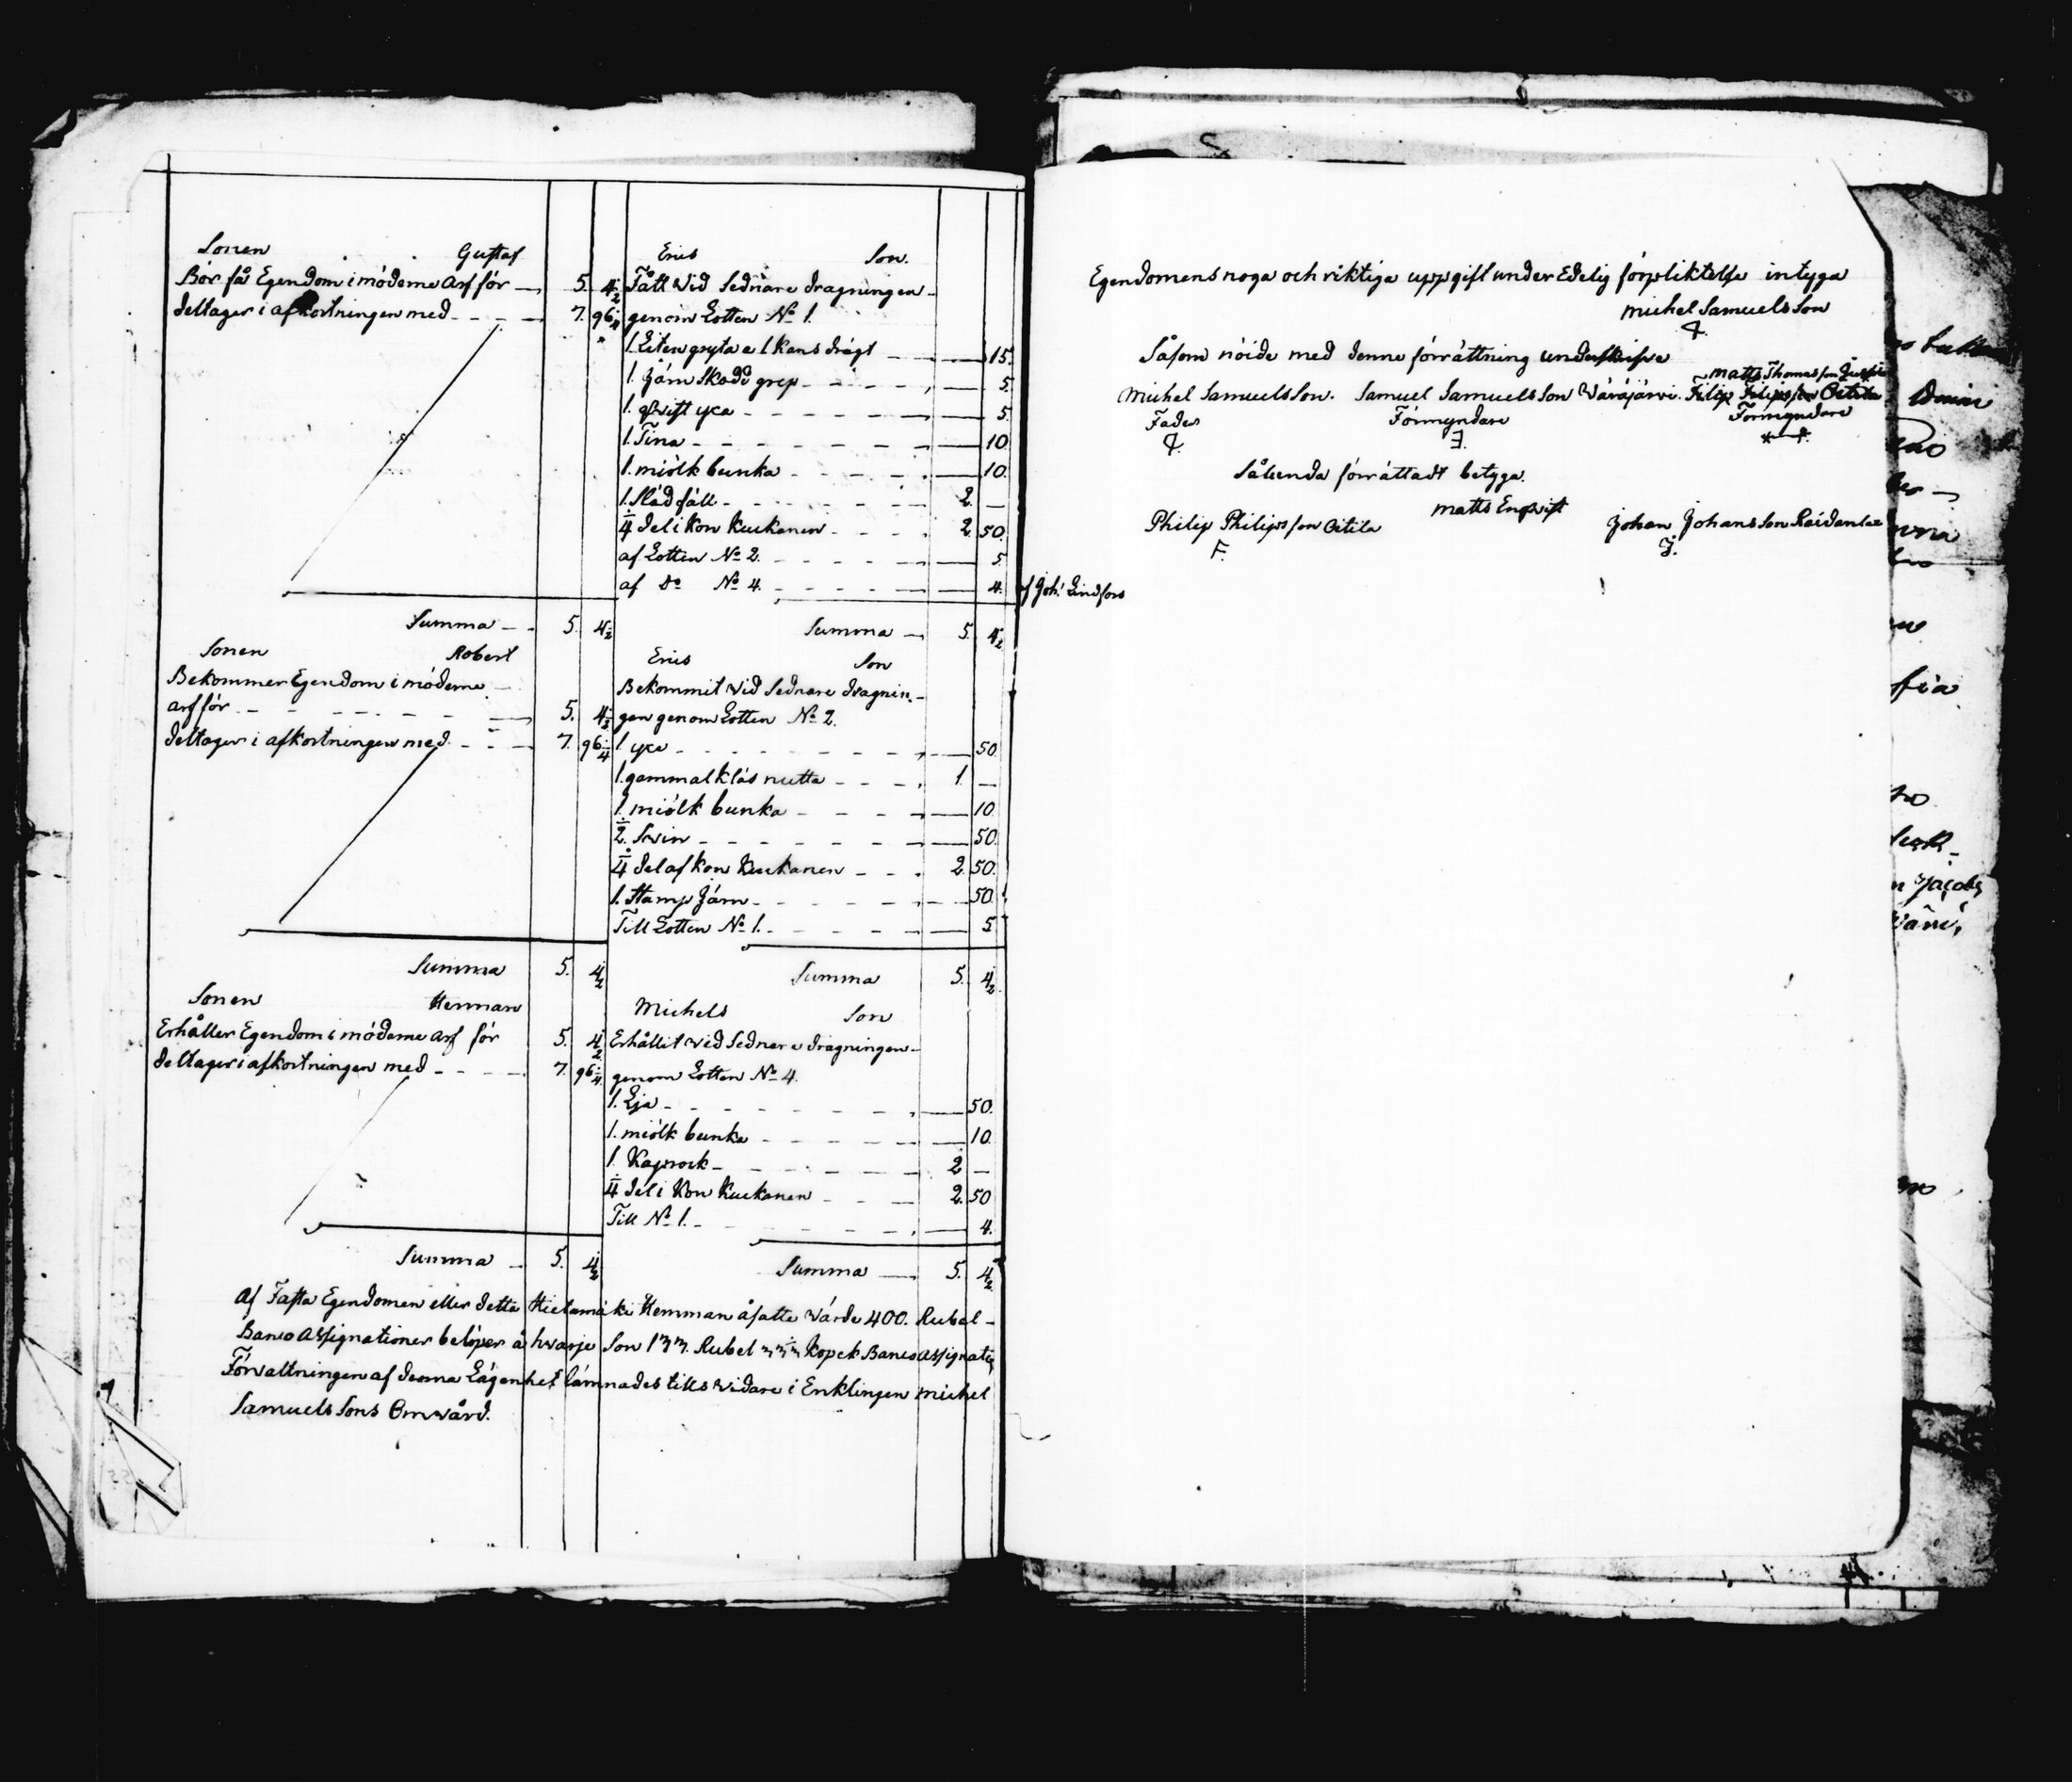 Sonen Gustaf
Bör få Egendom i möderne Arf för 5. 4 1/2
deltager i afkortningen med 7. 96 1/4
Summa 5. 4 1/2
Eries Son.
Fått vid Sednare dragningen
genom Lotten No 1.
1. Liten gryta a 1 kans drägt 15.
1. Järn Skodd grep 5.
1. qvist yxa 5.
1. Tina 10
1. miölk bunka 10.
1. Släd fäll 2. —
1/4 del i Kon Kuckanen 2. 50.
af Lotten No 2. 5
af Do No 4. 4.
Summa 5. 4 1/2
Sonen Robert
Bekommer Egendom i möderne
arf för 5. 4 1/2
deltager i afkortningen med 7. 96 1/4
Summa 5. 4 1/2
Eries Son
Bekommit vid Sednare dragnin-
gen genom Lotten No 2.
1. yxa 50
1. gammal kläs nutta 1. —
1. miölk bunka 10.
1/2 Svin 50.
1/4 del af kon Kuckanen 2. 50.
1. Stamp Järn 50.
Till Lotten No 1. 5
Summa 5. 4 1/2
Sonen Herman
Erhåller Egendom i möderne Arf för 5. 4 1/2
deltager i afkortningen med 7. 96 1/4
Summa 5. 4 1/2
Michels Son
Erhållit vid Sednare dragningen
genom Lotten No 4.
1. Lja 50.
1. miölk bunka 10.
1. Kaprock 2 —
1/4 del i Kon Kuckanen 2. 50
Till No 1. 4.
Summa 5. 4 1/2
Af Fasta Egendomen eller detta Hietamäki Hemman åsatte värde 400. Rubel
Banco Assignationer belöper å hvarje Son 133. Rubel 33 1/3 Kopek Banco Assignati
Förvaltningen af denna Lägenhet lämnades tills vidare i Enklingen Michel
Samuels Sons Omvård.
Egendomens noga och riktiga uppgift under Edelig förpliktelse intyga
Michel Samuels Son
Såsom nöide med denne förrättning underskrifve
Matts Thomasson
Michel Samuels Son. Samuel Samuels Son Väräjärvi. Filip Filipsson Oitila
Fader Förmyndare Förmyndare
Sålunda förrättadt betyga.
Matts Enqvist
Philip Philipsson Oitila Johan Johans Son Raidanlae
F. J.
af Joh: Lindfors